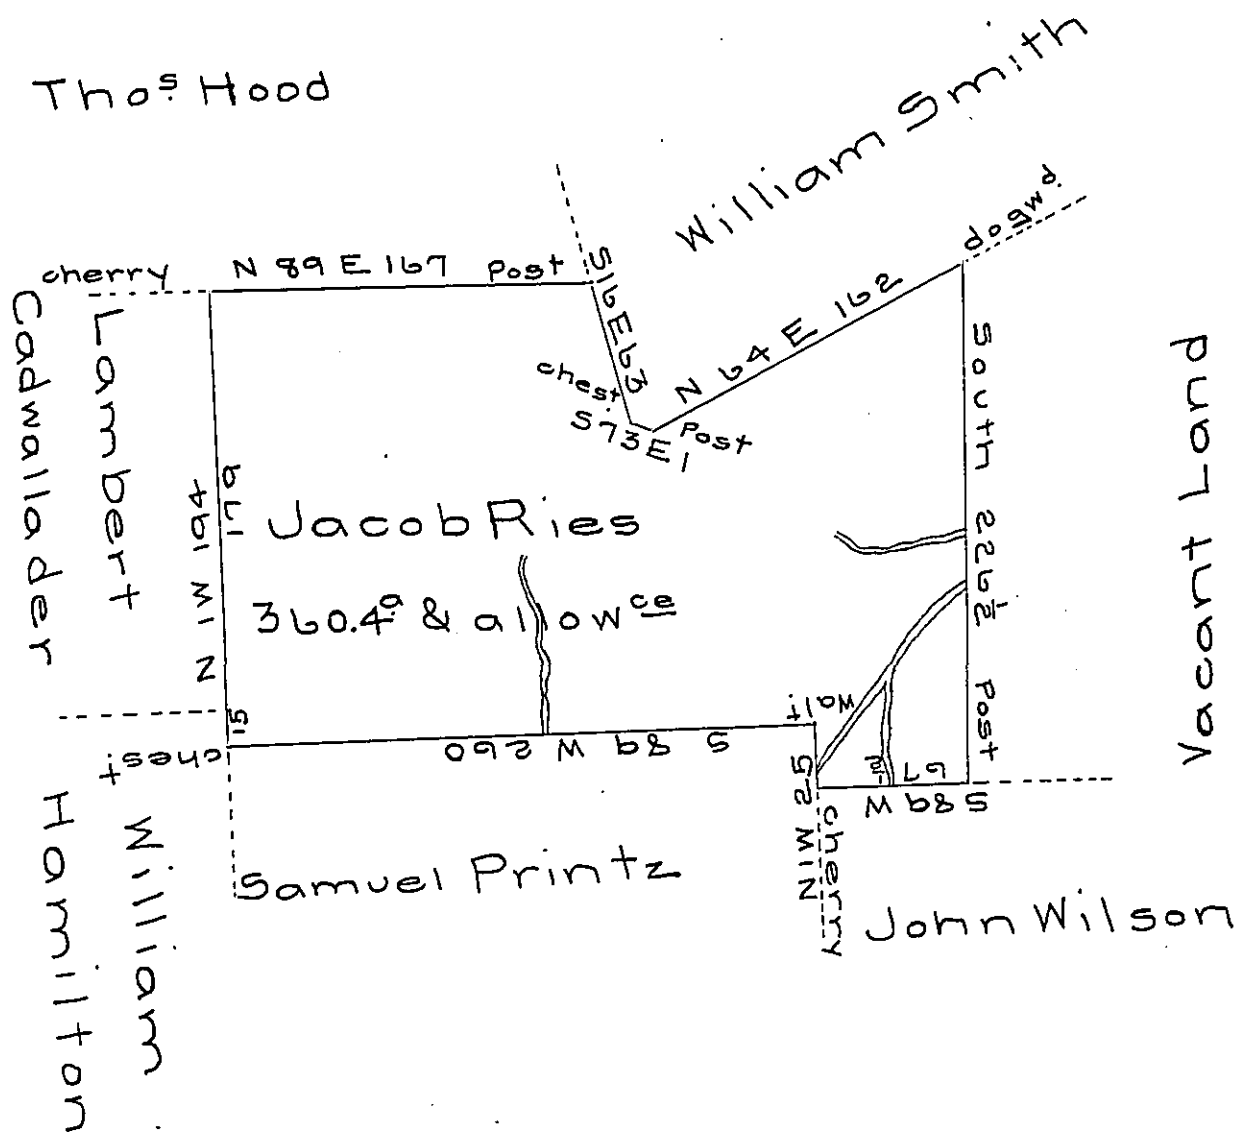 Thoˢ. Hood
William Smith
dogwd.
cherry
N 89 E 167 Post
S16E63
chest.
S.73E1
Post
N 64 E 162
South 226½ Post
Vacant Land
Lambert
Cadwallader
N 1W 194
179
15
Jacob Ries
360.4ᵃ & allowᶜᵉ
chest
S 89 W 260
Walt
N1W 25
cherry
S 89 W 67
William
Hamilton
Samuel Printz
John Wilson